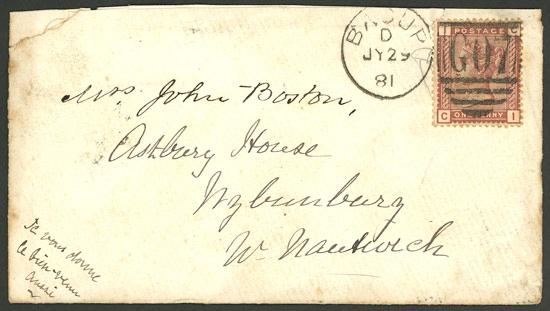 I C
POSTAGE
ONE PENNY
C I
G07
D
JY 29
81
Mrs John Boston,
Astbury House
Wybunbury
Nr. Nantwich
Je vous donne
le bien venu
aussi